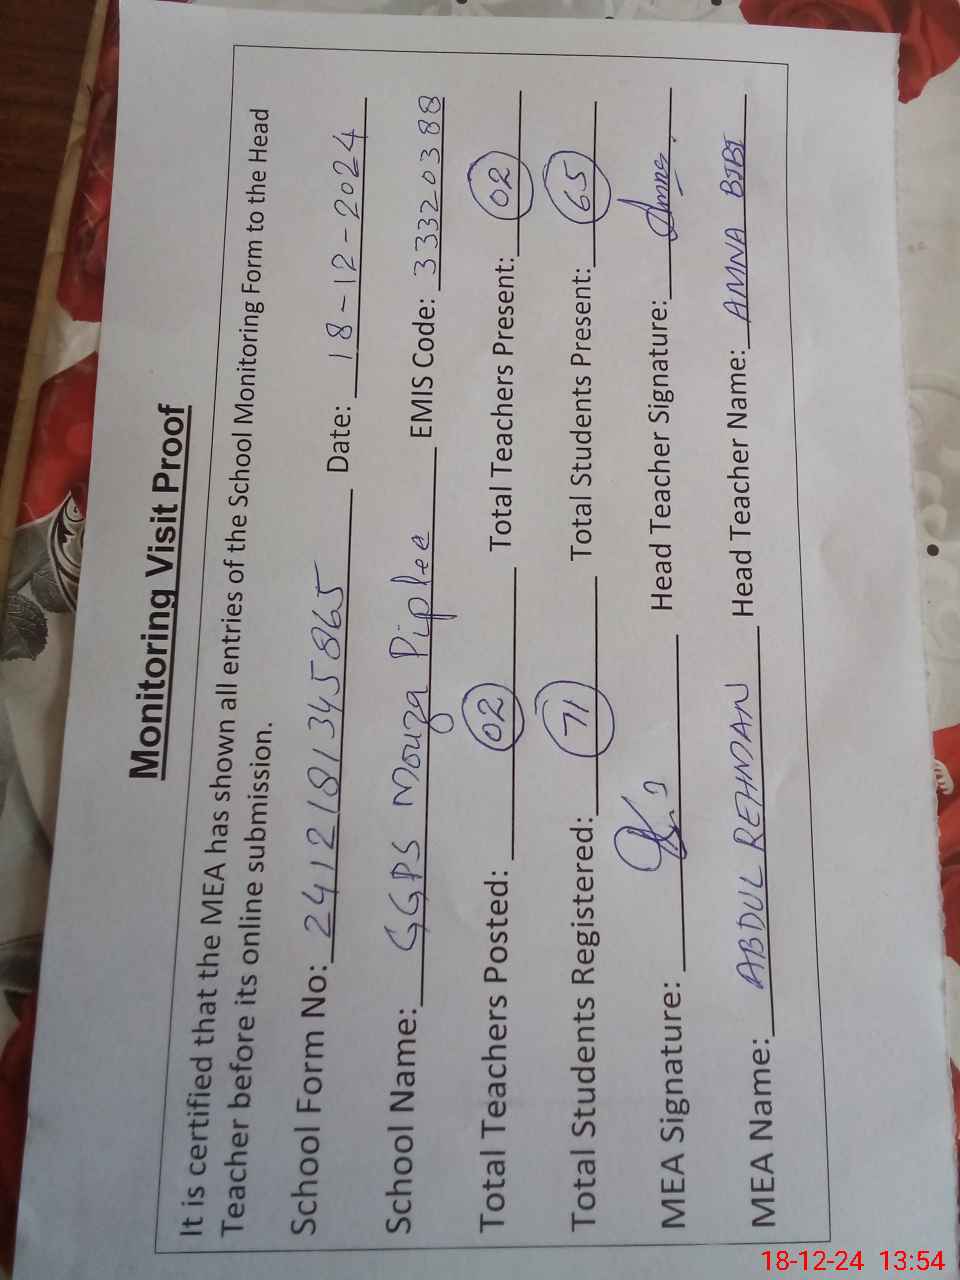 Monitoring Visit Proof
It is certified that the MEA has shown all entries of the School Monitoring Form to the Head
Teacher before its online submission.
School Form No: 241218134S865 Date: 18-12-2024
School Name: GGPS Mouza Piplee EMIS Code: 33320388
Total Teachers Posted: 02 Total Teachers Present: 02
Total Students Registered: 71 Total Students Present: 65
MEA Signature: Head Teacher Signature: Amna.
MEA Name: ABDUL REHMAN Head Teacher Name: AMNA BIBI
18-12-24 13:54